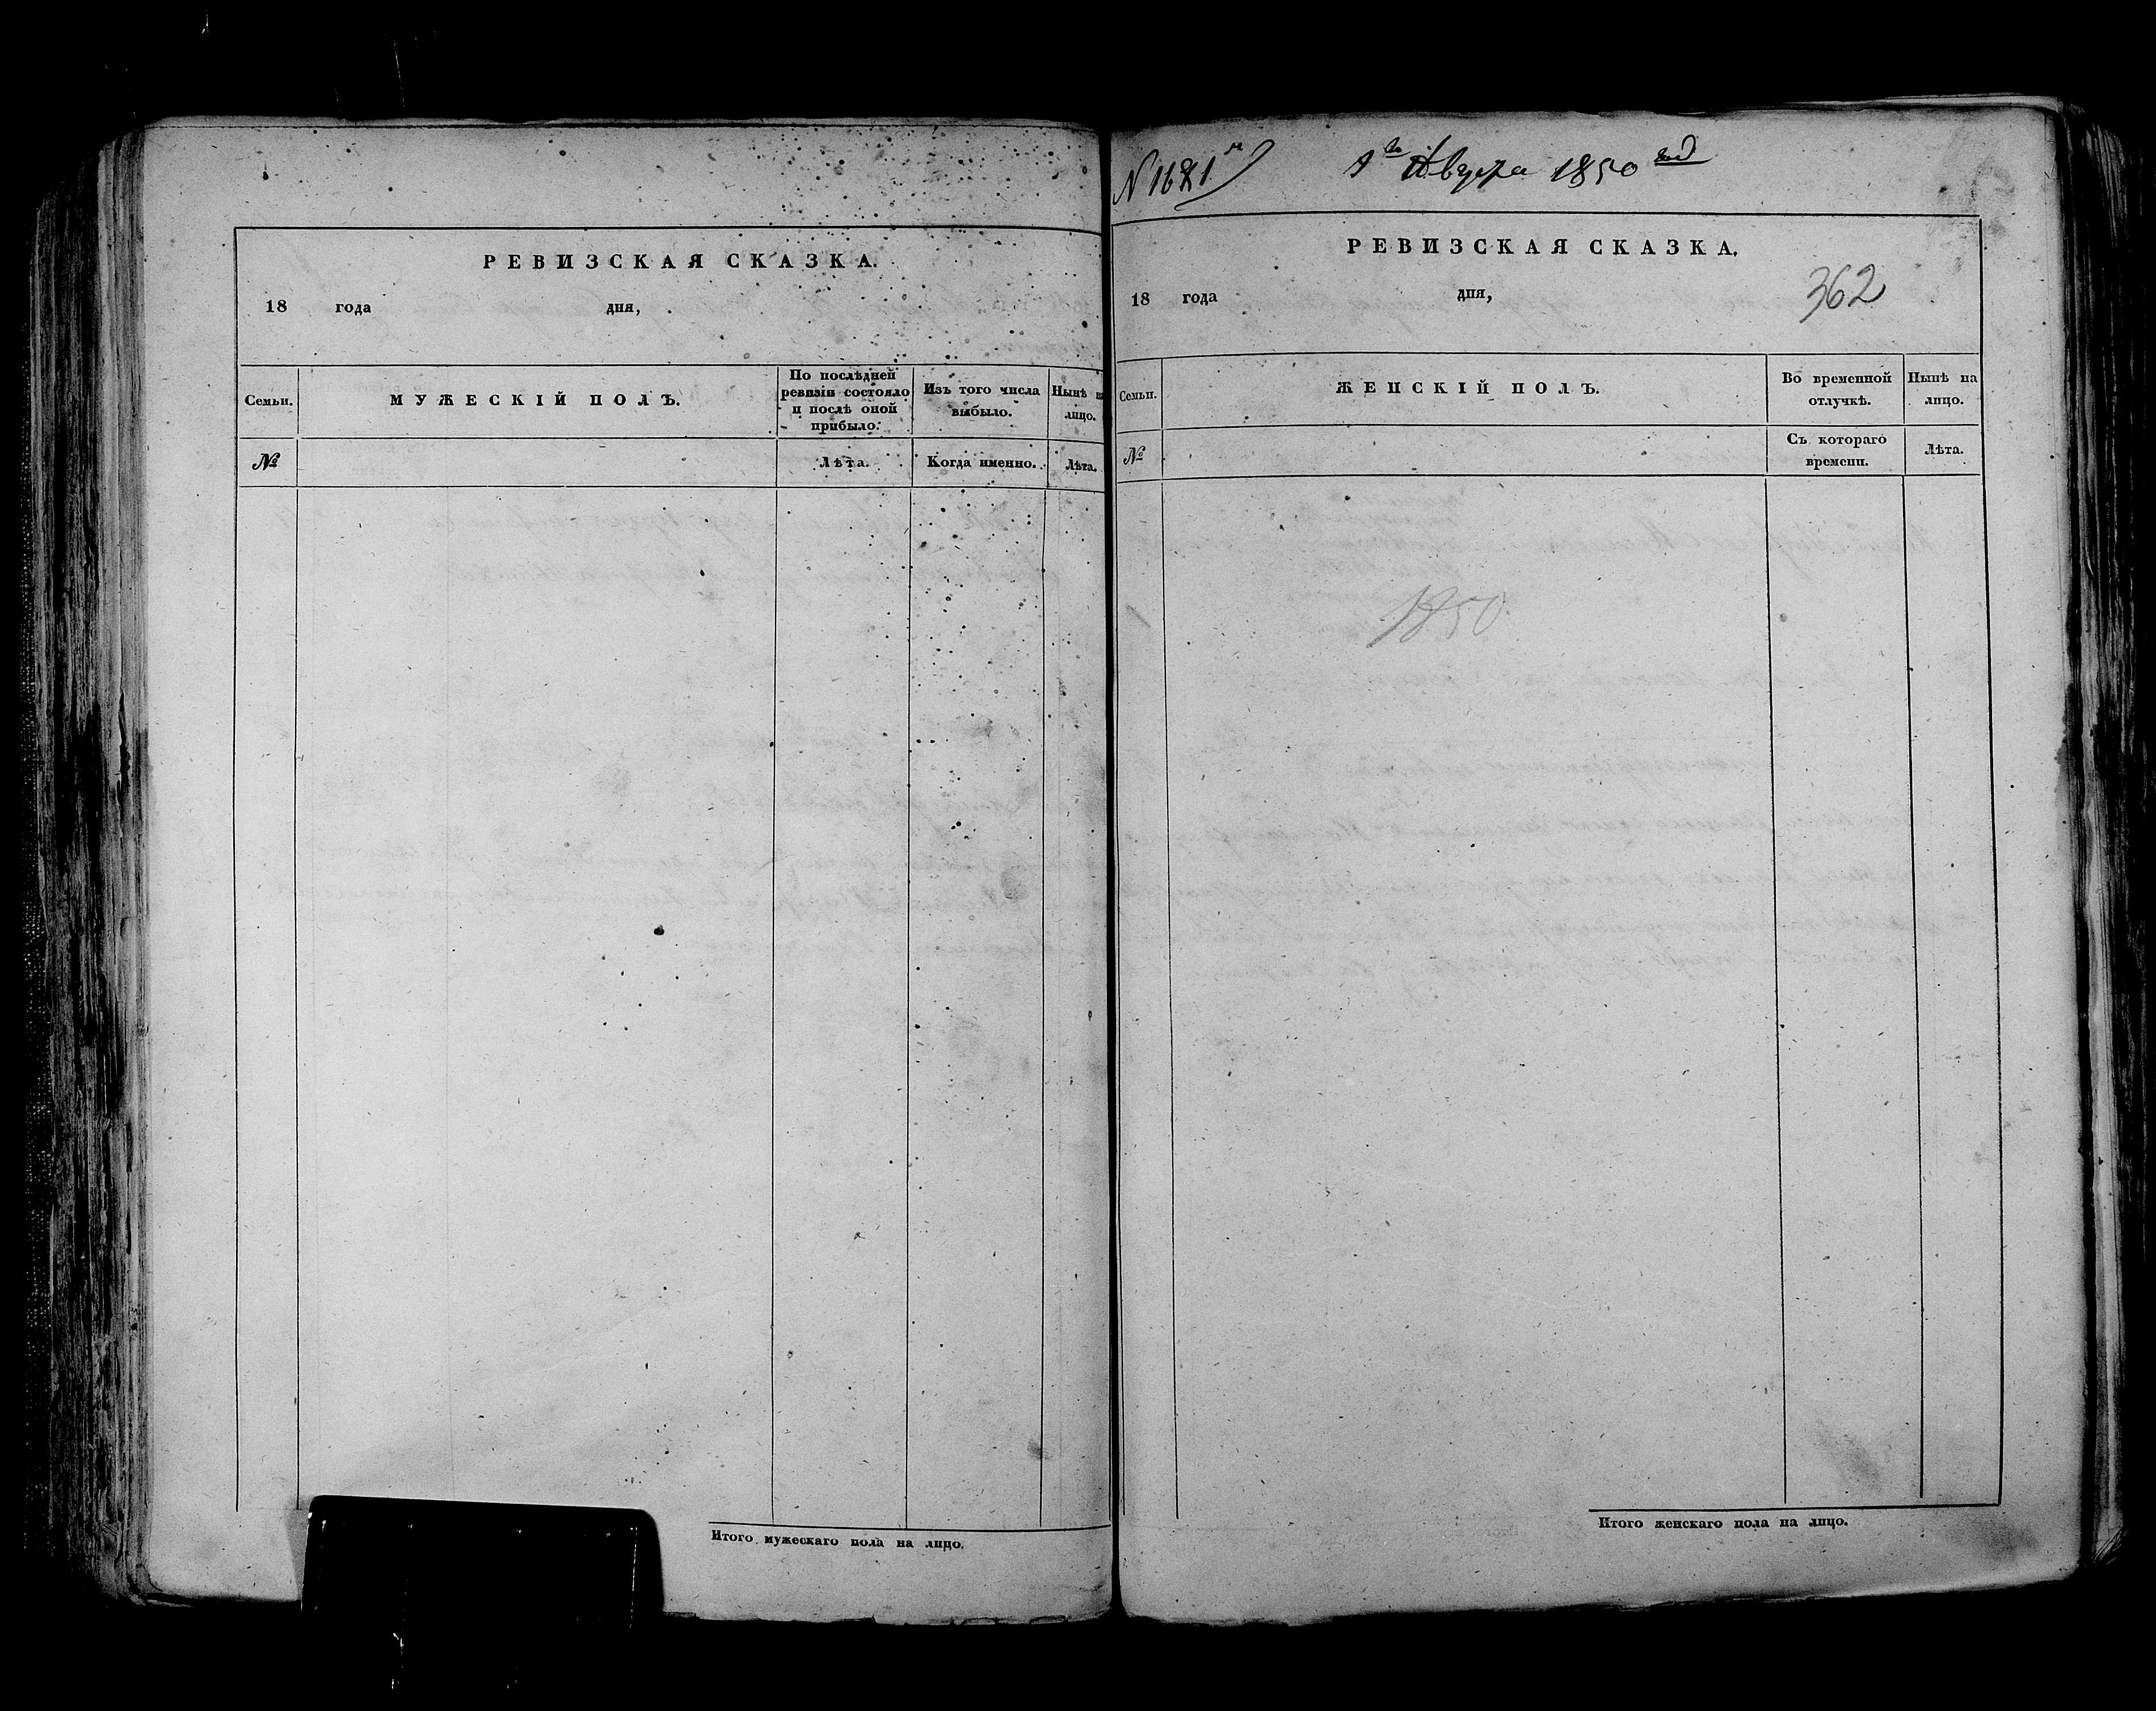 РЕВИЗСКАЯ СКАЗКА.
18 года дня,
Семьи.
МУЖЕСКІЙ ПОЛЪ.
По послѣдней
ревизіи состояло
и послѣ оной
прибыло.
Изъ того числа
выбыло.
Нынѣ на
лицо.
№
Лѣта.
Когда именно.
Лѣта.
Итого мужескаго пола на лицо.
N 1681
1го Августа 1850 год
РЕВИЗСКАЯ СКАЗКА.
362
18 года дня,
Семьи.
ЖЕНСКІЙ ПОЛЪ.
Во временной
отлучкѣ.
Нынѣ на
лицо.
№
Съ котораго
времени.
Лѣта.
1850.
Итого женскаго пола на лицо.